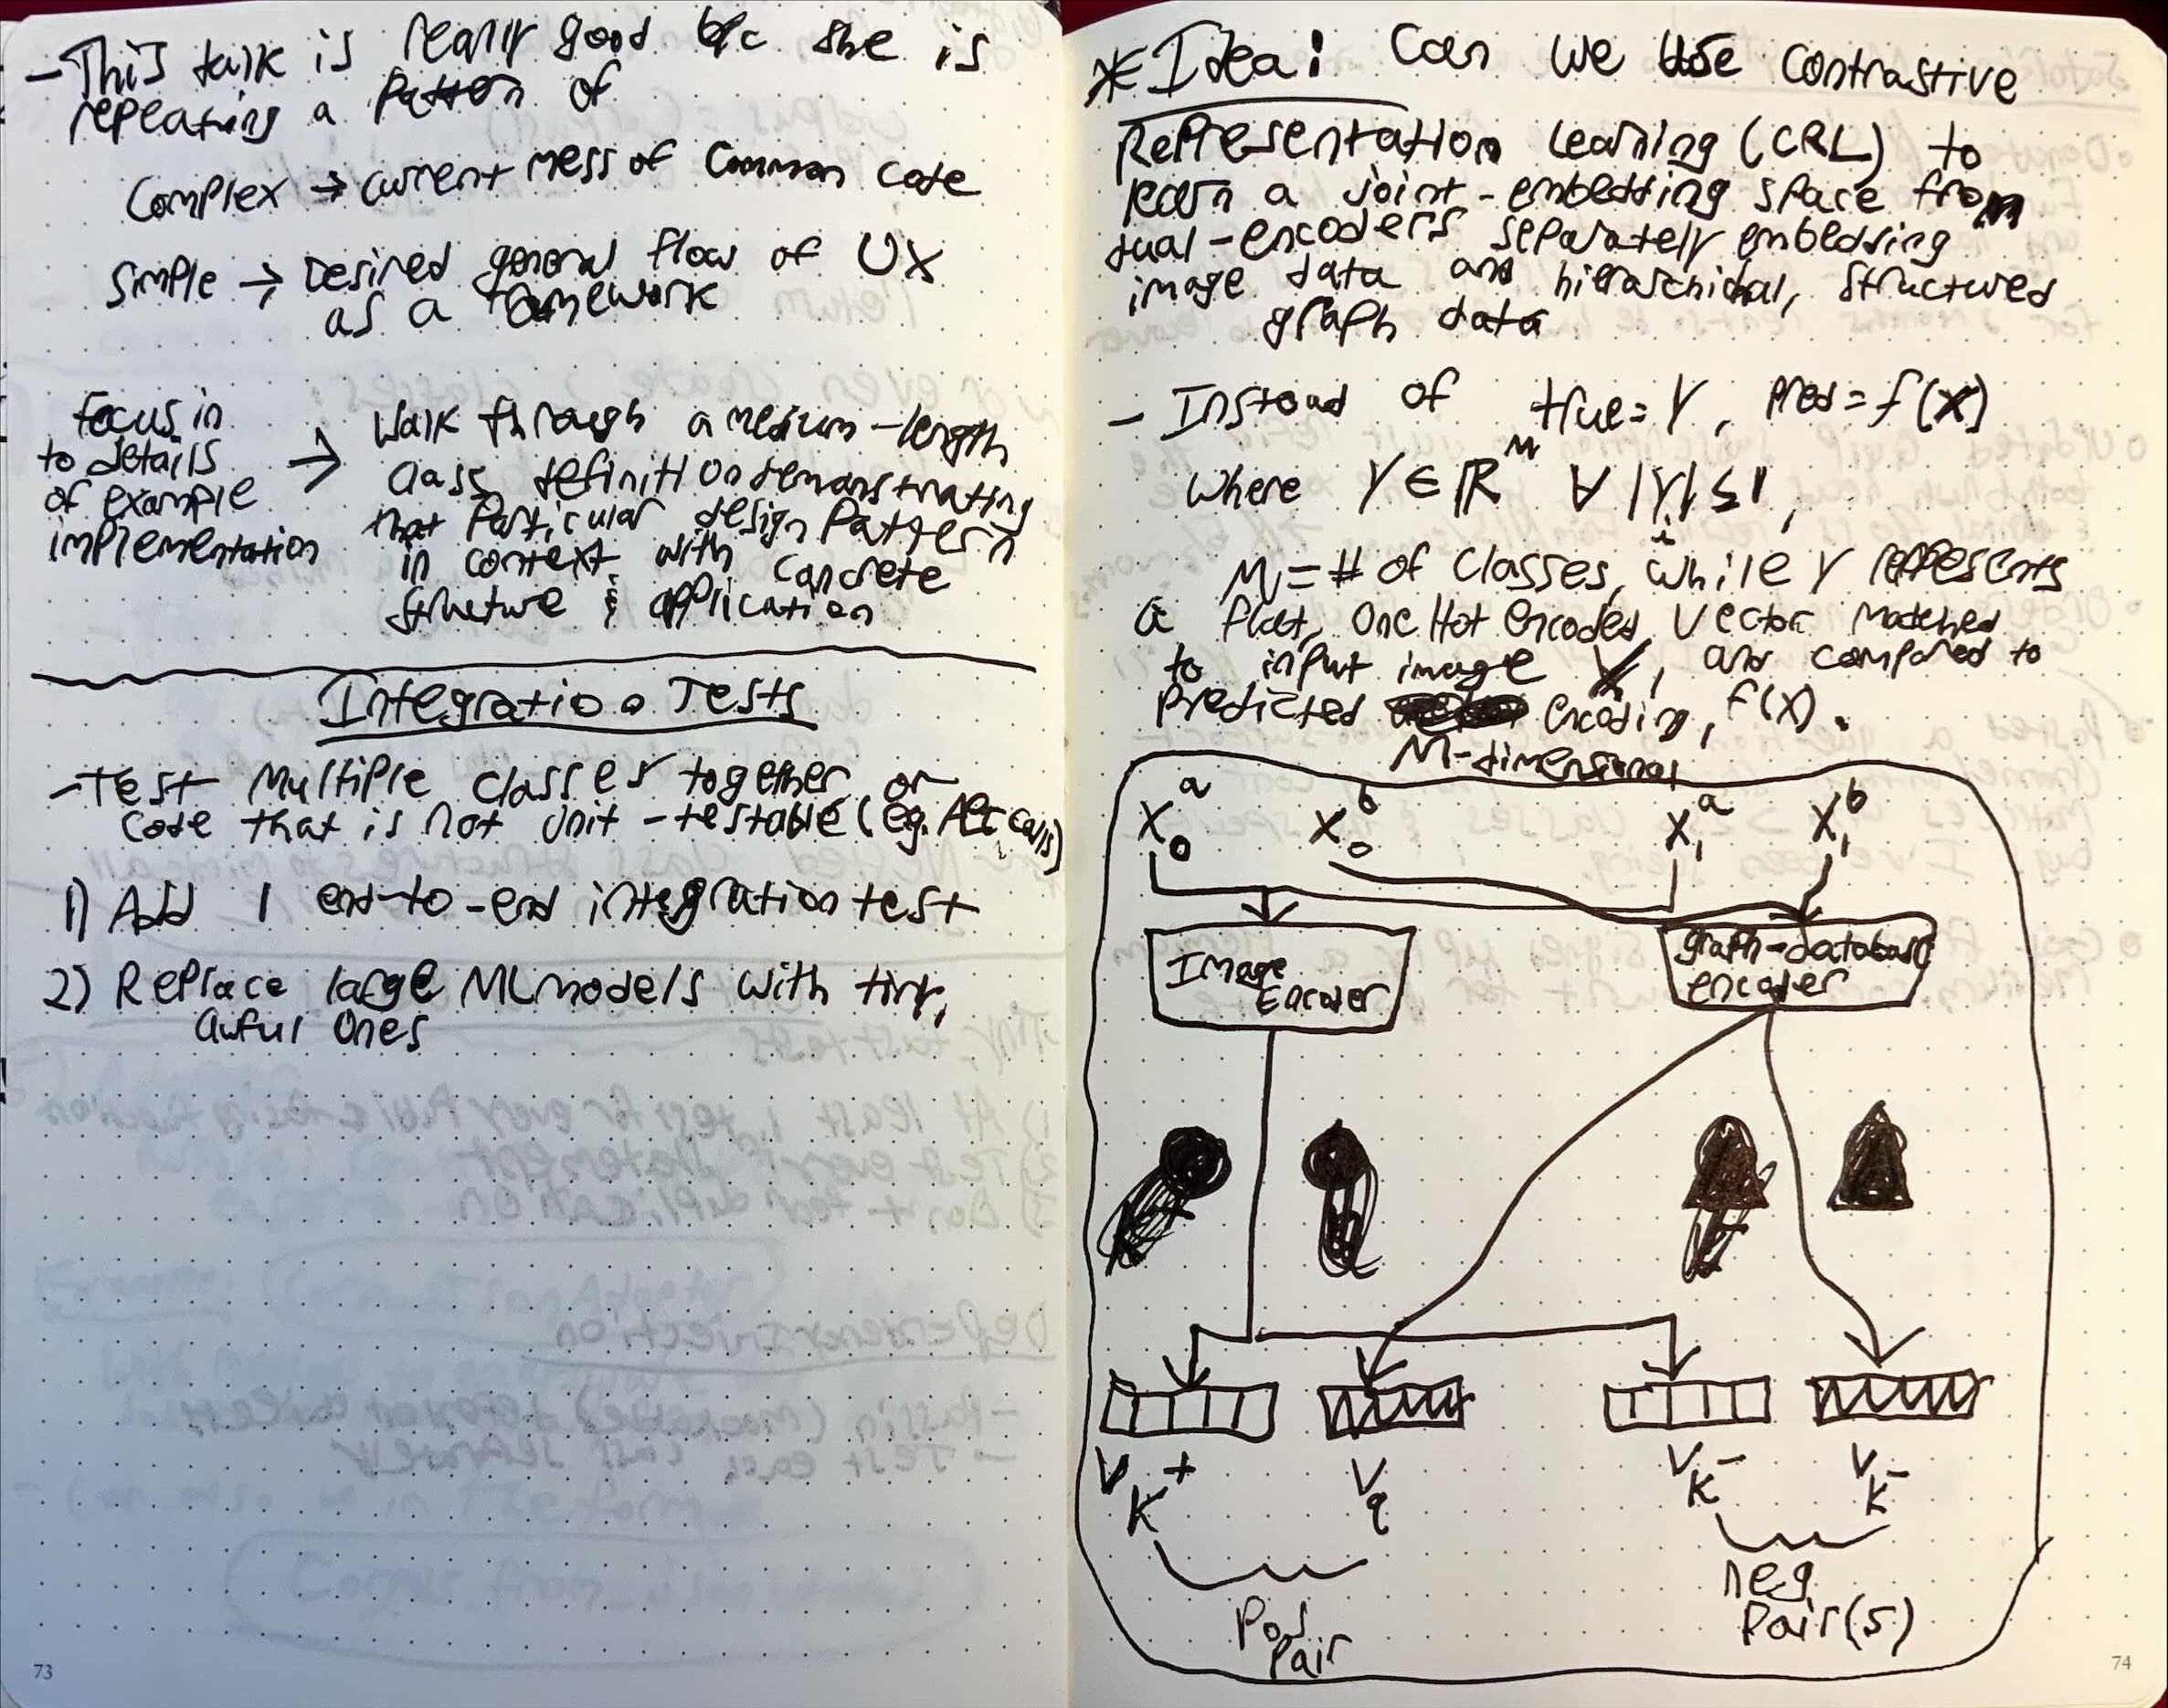 - This talk is really good b/c she is
repeating a Pattern of
Complex → current mess of Common code
Simple → Desired general flow of UX
as a framework
Focus in
to details
of example
implementation
→ Walk through a medium-length
class definition demonstrating
that particular design Pattern
in context with concrete
structure & application
Integration Tests
- Test Multiple classes together or
code that is not unit-testable (eg. API calls)
1) Add 1 end-to-end integration test
2) Replace large ML models with tiny,
awful ones
73
* Idea: Can we Use Contrastive
Representation Learning (CRL) to
learn a joint-embedding space from
dual-encoders separately embedding
image data and hierarchical, structured
graph data
- Instead of true = Y, pred = f(X)
Where Y ∈ ℝ^M ∀ |Y_i| ≤ 1,
M = # of classes, while Y represents
a flat, One Hot encoded Vector Matched
to input image X, and compared to
Predicted encoding, f(X).
M-dimensional
X₀ᵃ X₀ᵇ X₁ᵃ X₁ᵇ
Image
Encoder
graph-database
encoder
V_K⁺ V_q V_K⁻ V_K⁻
Pos
Pair
neg
Pair(s)
74